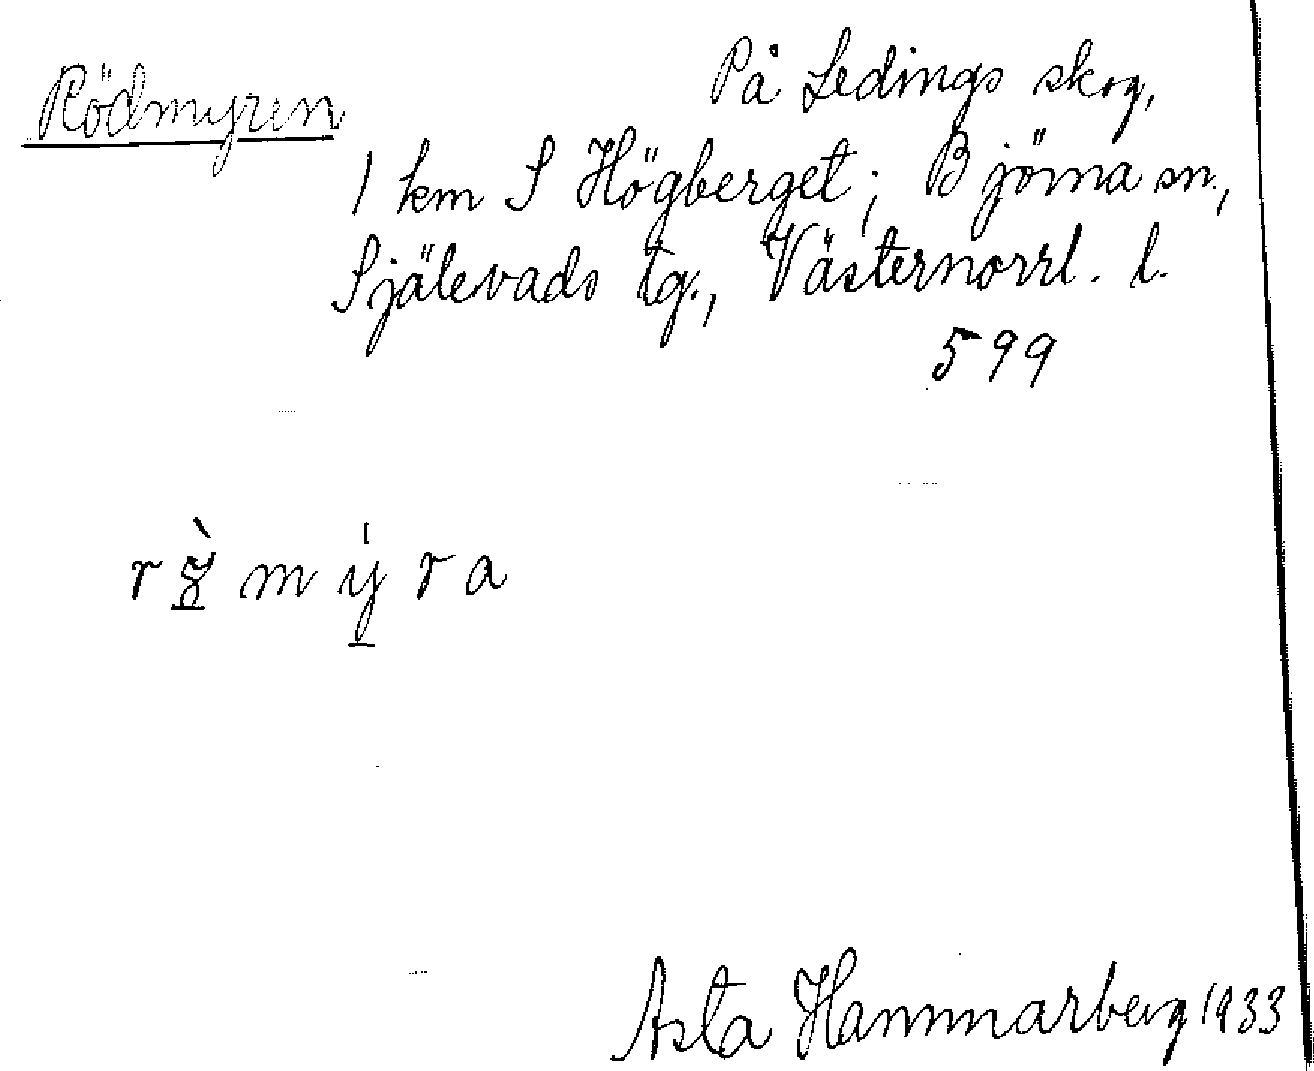 Rödmyren
På Ledings skog,
1 km S Högberget; Björna sn.,
Själevads tg., Västernorrl. l.
599
Asta Hammarberg 1933